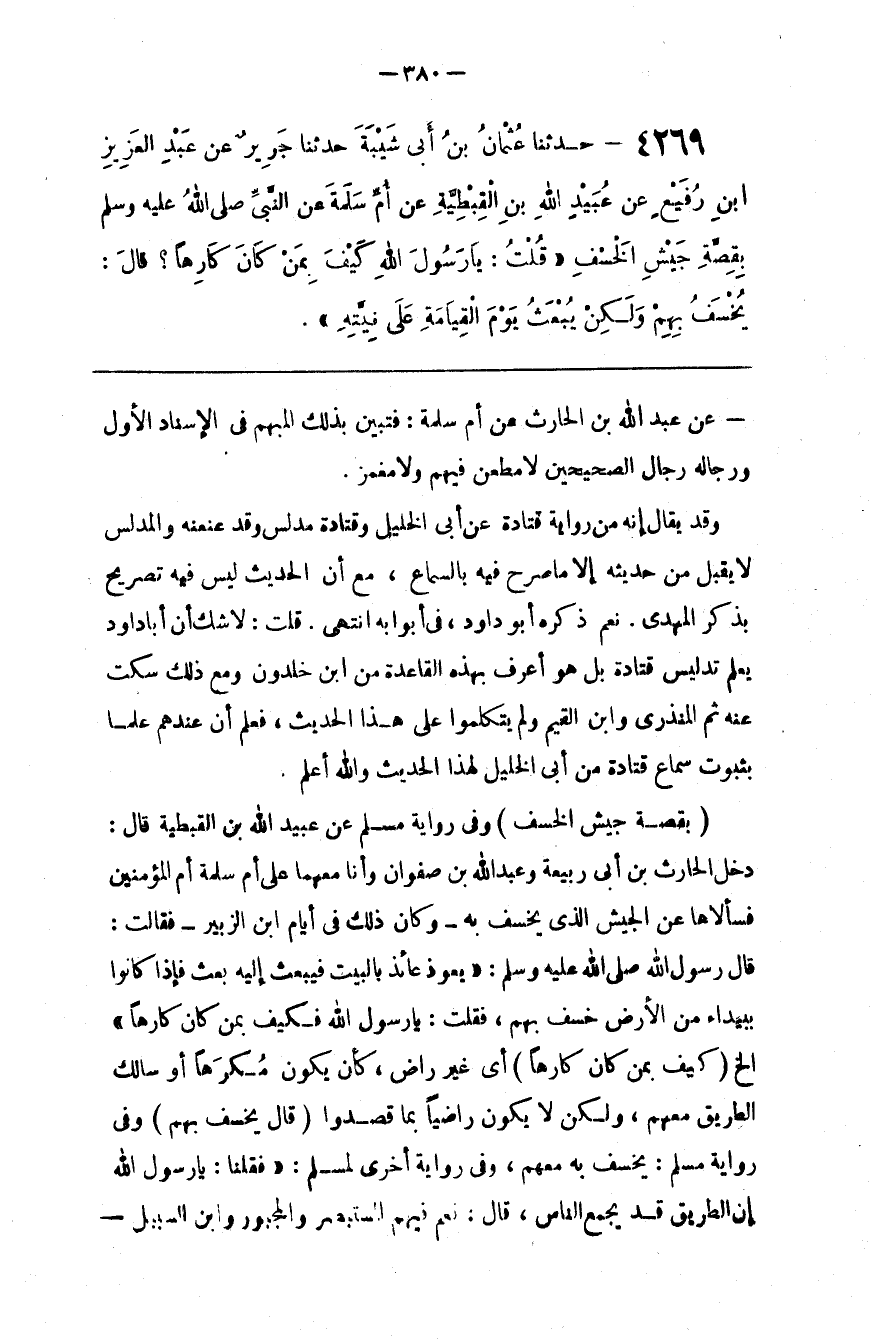 — ٣٨٠ —
٤٢٦٩ — حـدثنا عُثْمَانُ بنُ أَبى شَيْبَةَ حدثنا جَرِيرٌ عن عَبْدِ العَزِيزِ
ابنِ رُفَيْعٍ عن عُبَيْدِ اللهِ بنِ الْقِبْطِيَّةِ عن أُمِّ سَلَمَةَ عن النَّبىِّ صلى اللهُ عليه وسلم
بِقِصَّةِ جَيْشِ الْخَسْفِ « قُلْتُ : يَارَسُولَ اللهِ كَيْفَ بِمَنْ كَانَ كَارِهاً ؟ قالَ :
يُخْسَفُ بِهِمْ وَلَـكِنْ يُبْعَثُ يَوْمَ الْقِيَامَةِ عَلَى نِيَّتِهِ » .
— عن عبد الله بن الحارث عن أم سلمة : فتبين بذلك المبهم فى الإسناد الأول
ورجاله رجال الصحيحين لامطعن فيهم ولامغمز .
وقد يقال إنه من رواية قتادة عن أبى الخليل وقتادة مدلس وقد عنعنه والمدلس
لايقبل من حديثه إلا ماصرح فيه بالسماع ، مع أن الحديث ليس فيه تصريح
بذكر المهدى . نعم ذكره أبو داود ، فى أبوابه انتهى . قلت : لاشك أن أباداود
يعلم تدليس قتادة بل هو أعرف بهذه القاعدة من ابن خلدون ومع ذلك سكت
عنه ثم المنذرى وابن القيم ولم يتكلموا على هـذا الحديث ، فعلم أن عندهم علمـا
بثبوت سماع قتادة من أبى الخليل لهذا الحديث والله أعلم .
( بقصـة جيش الخسف ) وفى رواية مسـلم عن عبيد الله بن القبطية قال :
دخل الحارث بن أبى ربيعة وعبدالله بن صفوان وأنا معهما على أم سلمة أم المؤمنين
فسألاها عن الجيش الذى يخسف به ــ وكان ذلك فى أيام ابن الزبير ــ فقالت :
قال رسول الله صلى الله عليه وسلم : « يعوذ عائذ بالبيت فيبعث إليه بعث فإذا كانوا
ببيداء من الأرض خسف بهم ، فقلت : يارسول الله فـكيف بمن كان كارهاً »
الخ ( كيف بمن كان كارهاً ) أى غير راض ، كأن يكون مُـكرَهاً أو سالك
الطريق معهم ، ولـكن لا يكون راضياً بما قصـدوا ( قال يخسف بهم ) وفى
رواية مسلم : يخسف به معهم ، وفى رواية أخرى لمسـلم : « فقلنا : يارسول الله
إن الطريق قـد يجمع الناس ، قال : نعم فيهم المستبصر والمجبور وابن السبيل —